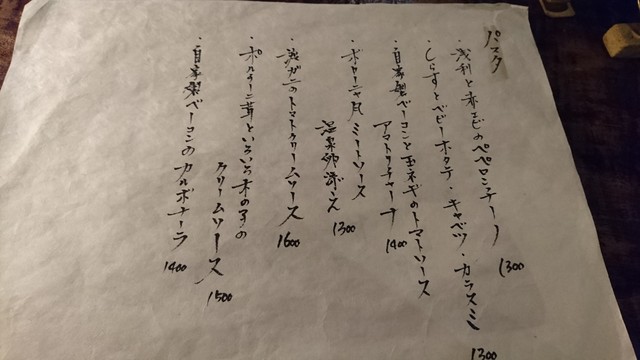 パスタ
・浅利と赤エビのペペロンチーノ
1300
・しらすとベビーホタテ・キャベツ・カラスミ
1300
・自家製ベーコンと玉ネギのトマトソース
アマトリチャーナ
1400
・ボローニャ風ミートソース
温泉卵添え
1300
・渡ガニのトマトクリームソース
1600
・ポルチーニ茸といろいろ木の子の
クリームソース
1500
・自家製ベーコンのカルボナーラ
1400